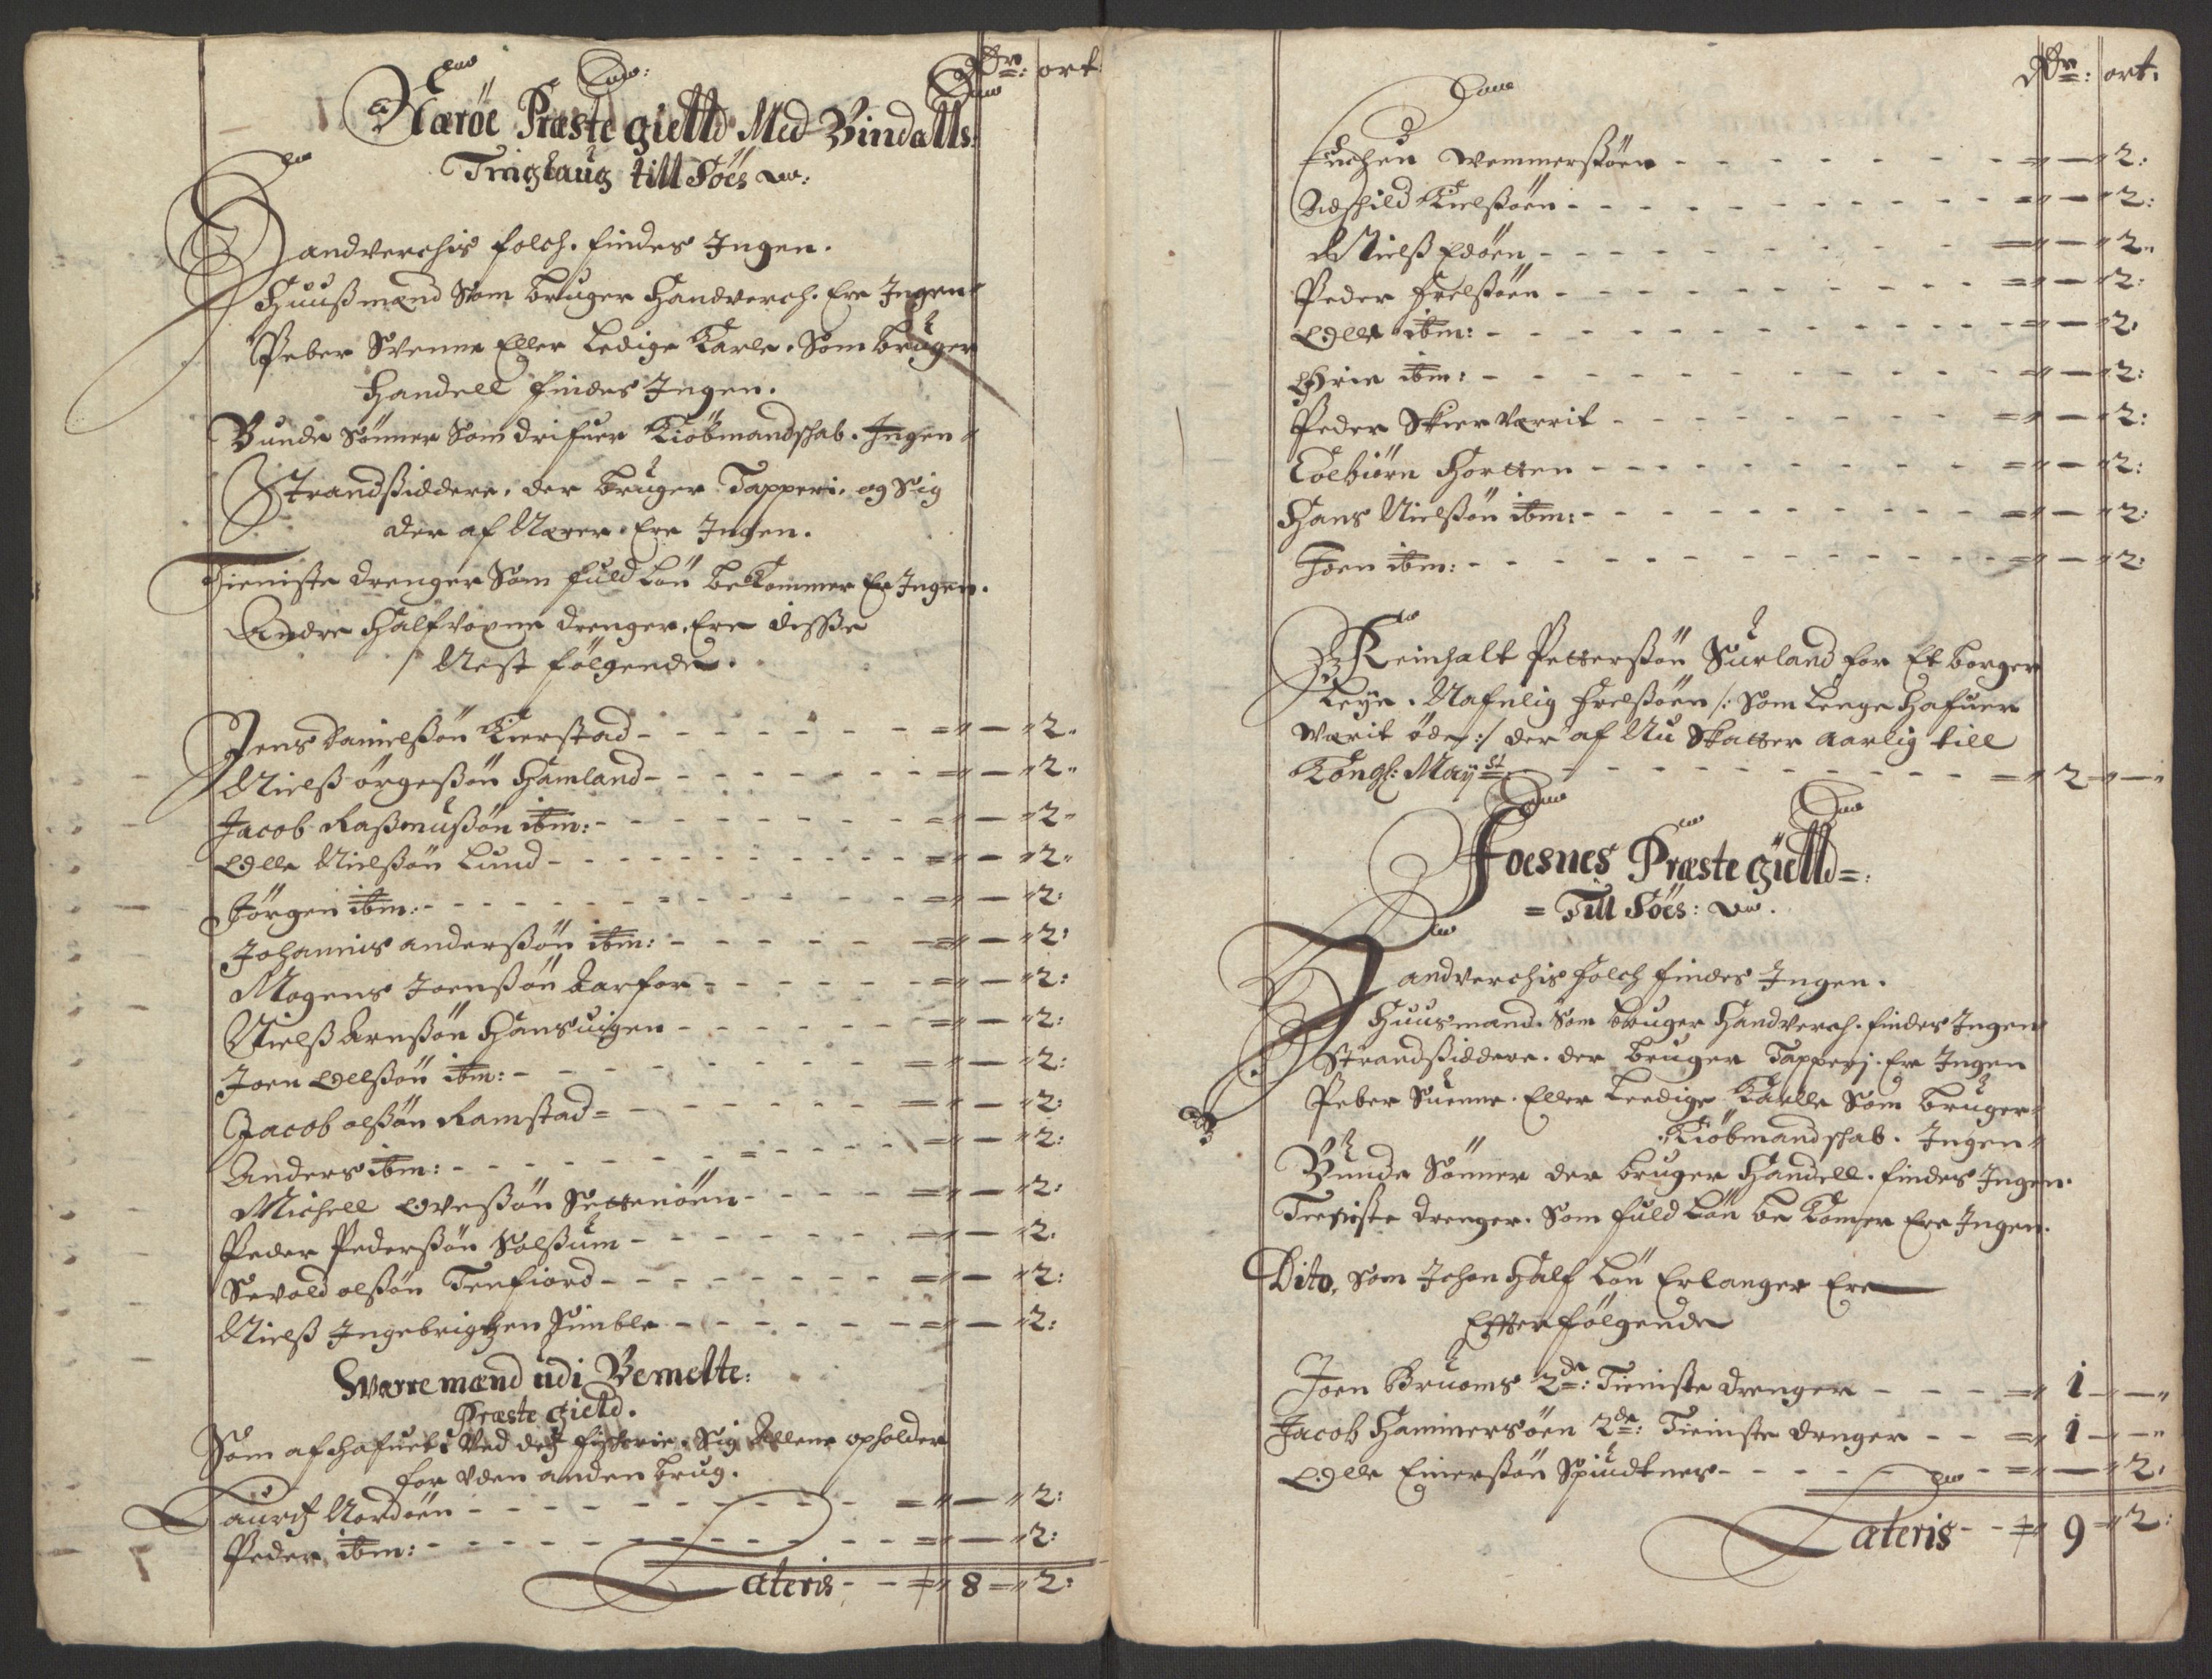 Rdr: ort:
Næröe Præste gielld Med Bindalls
Tinglaug till Söes
Handverchis folch. findes Ingen.
Huußmænd Som bruger Handverch. Ere Ingen
Peber Svenne Eller Ledige Karle. Som bruger
Handell findes Ingen.
Bunde Sönner Som drifuer Kiöbmandschab. Ingen
Strandßiddere. der bruger Tapperi. og Sig
der af Nærer. Ere Ingen.
Tieniste drenger Som fuld Lön bekommer Er Ingen.
Andre Halfvoxne drenger. Ere disse
Nest følgende.
Jens Danielßön Kierstad - - - = - " 2 "
Nielß örgeßön Hamland - - - = - " 2 "
Jacob Raßmußön ibm: - - - = - " 2 "
Olle Nielßön Lund - - - = - " 2 "
Jörgen ibm: - - - = - " 2:
Johannis anderßön ibm: - - - = - " 2:
Mogens Joenßön - - - = - " 2:
Nielß Arnßön Hansuigen - - - = - " 2:
Joen Ollßön ibm: - - - = - " 2:
Jacob olßön Ramstad = - - - = - " 2:
Anders ibm: - - - = - " 2:
Michell Oveßön Settenöen - - - = - " 2:
Peder Pederßön Solßum - - - = - " 2.
Sevold olßön Terfiord - - - = - " 2:
Nielß Ingebrigtzen Simble - - - = - " 2:
Sværremænd udi Bemelte:
Præste gield.
Som af hafuet Ved det fischerie. Sig Allene opholder
for uden anden brug.
Laurtz Nordöen - - - = - " 2:
Peder ibm: - - - = - " 2:
Lateris - - = 8 = " 2:
Rdr: ort:
Wemmerßöen - - - = - " 2:
Kielßöen - - - = - " 2:
Nielß Edöen - - - = - " 2 "
Peder Frelßöen - - - = - " 2:
Olle ibm: - - - = - " 2.
ibm: - - - = - " 2:
Peder Skierværrit - - - = - " 2:
Tolbiörn Hortten - - - = - " 2:
Hans Nielßön ibm: - - - = - " 2:
Joen ibm: - - - = - " 2:
Reinhalt Petterßön Surland for Et borger
leye. Nafnlig Frelßöen /: Som lenge hafuer
værit öde :/ der af Nu Skatter aarlig till
Kongl: May st - - - = 2 = - "
Foesnes Præste gielld =:
= Till Söes:
Handverchis folch findes Ingen.
Huusmand. Som bruger Handverch. findes Ingen
Strandßiddere. der bruger Tapperj. Er Ingen
Peber Suenne. Eller Leedige Karlle Som bruger
Kiöbmandschab. Ingen
Bunde Sönner der bruger Handell. findes Ingen.
Tieniste drenger. Som fuld Lön be Komer Ere Ingen.
Dito, Som Ichon half Lön Erlanger Ere
Effterfölgende
Joen Bruoms 2de: Tieniste drenger - - - = 1 - - "
Jacob Hammersöen 2de: Tieniste drnger - - = 1 - - "
Olle Einerßön Spindtnes - - - = - " 2.
Lateris - - = 9 = " 2: